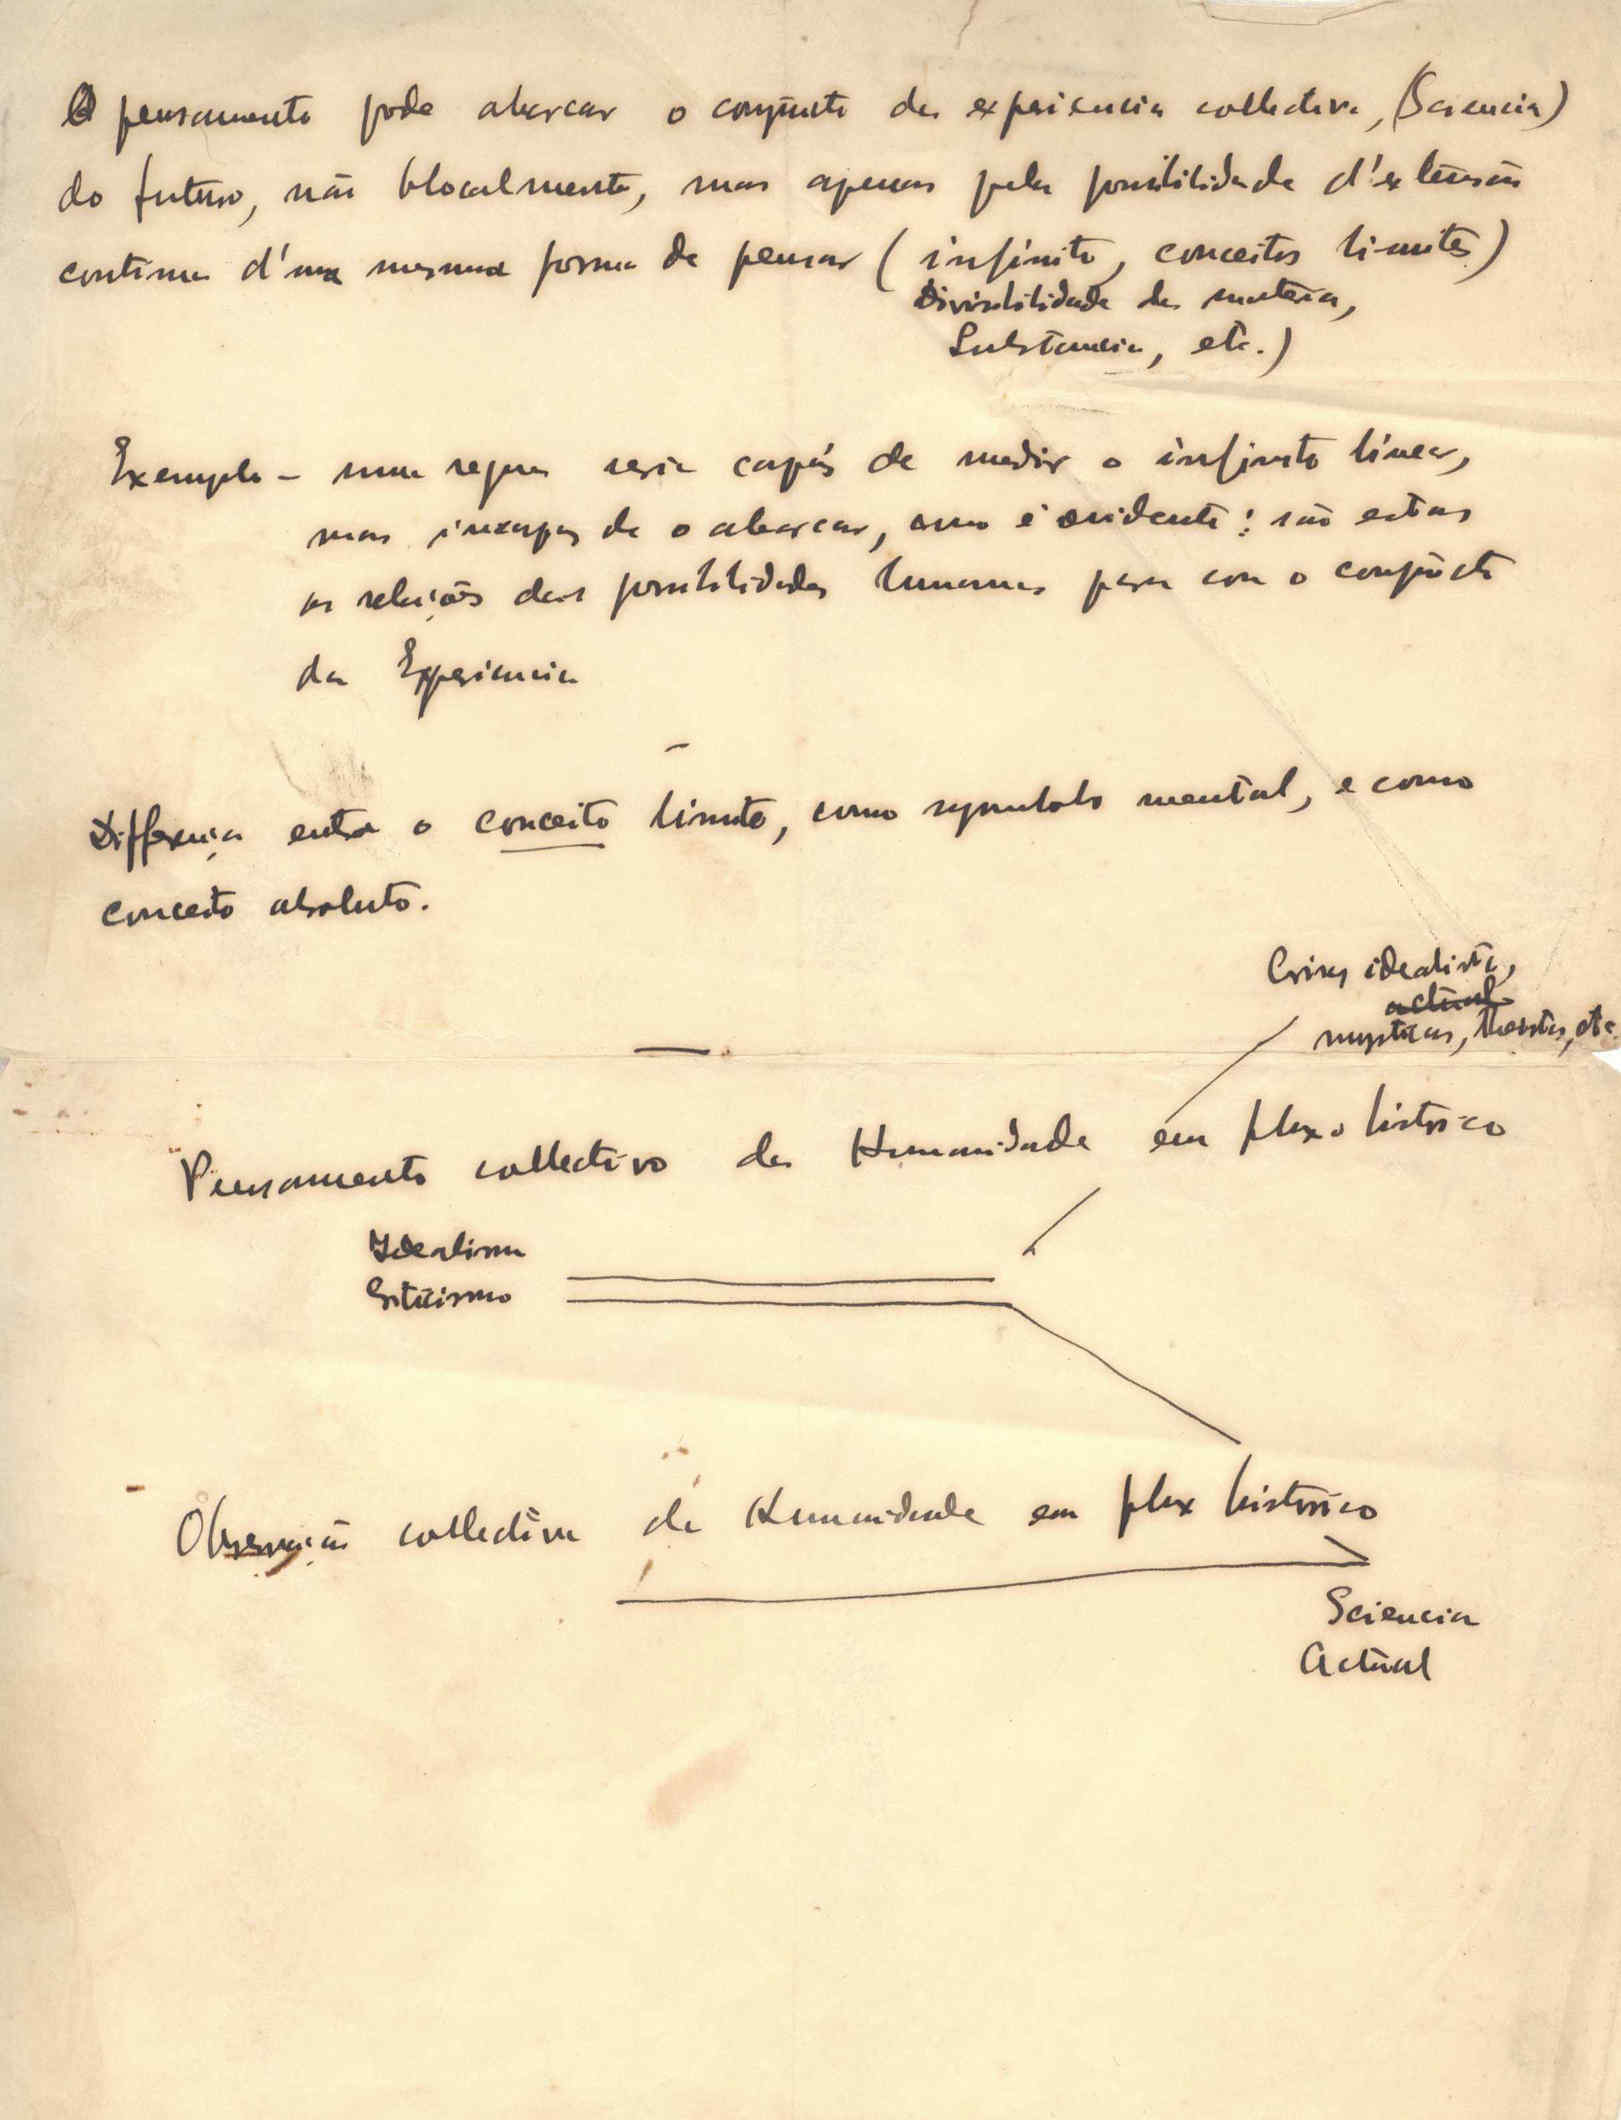 O pensamento pode abarcar o conjuncto da experiencia collectiva, (Sciencia)
do futuro, não blocalmente, mas apenas pela possibilidade d'extensão
continua d'uma mesma forma de pensar (infinito, conceitos limites)
Divisibilidade da materia,
Substancia, etc.)
Exemplo – uma regua seria capás de medir o infinito linear,
mas incapas de o abarcar, como é evidente: são estas
as relações das possibilidades humanas para com o conjuncto
da Experiencia
Differença entre o conceito limite, como symbolo mental, e como
conceito absoluto.
Crises idealistas,
actual
mysticas, theistas, etc.
Pensamento collectivo da Humanidade em fluxo historico
Idealismo
Criticismo
Observação collectiva da Humanidade em fluxo historico
Sciencia
Actual